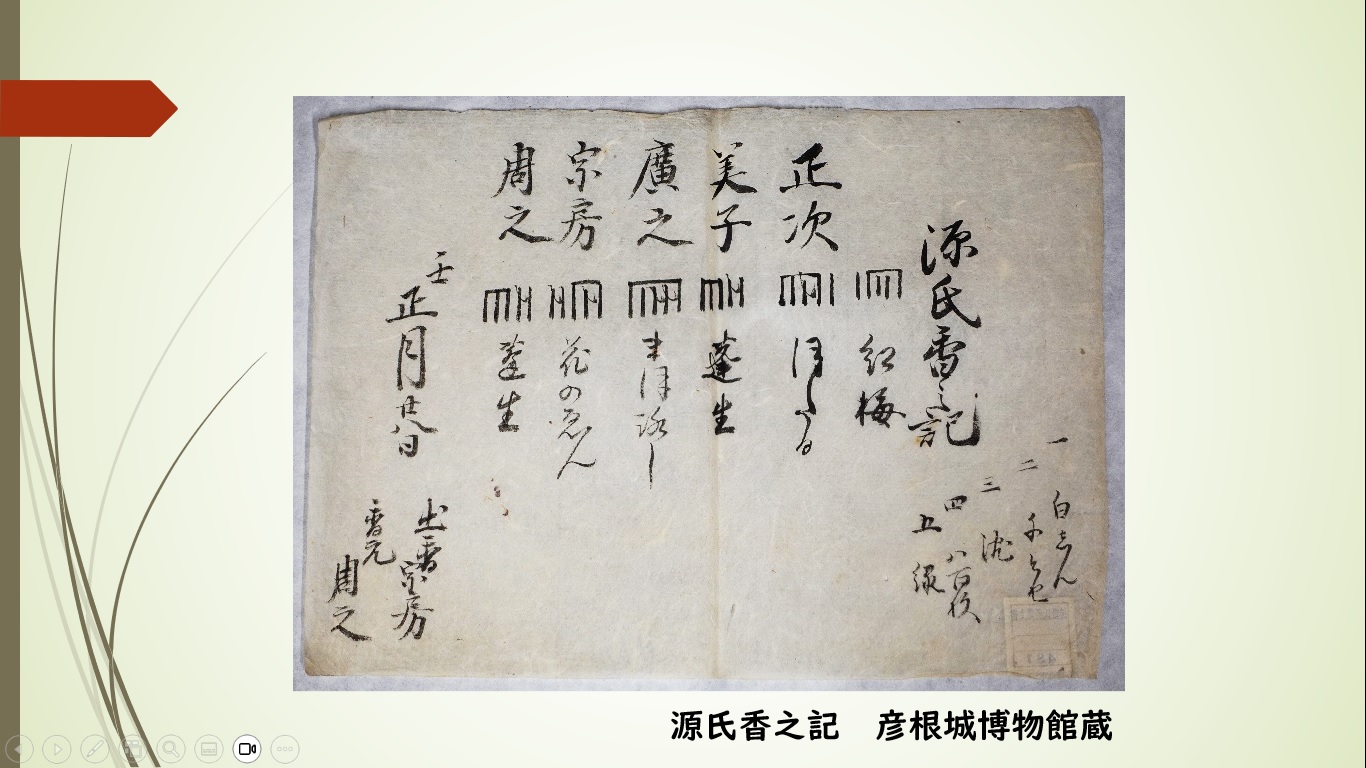 源氏香之記
一 白きん
二
三 沈
四 八百枚
五 緑
紅梅
正次 ほたる
美子 蓬生
廣之
宗房 花のゑん
周之 蓬生
壬
正月廿八日
出香 宗房
香元 周之
源氏香之記 彦根城博物館蔵